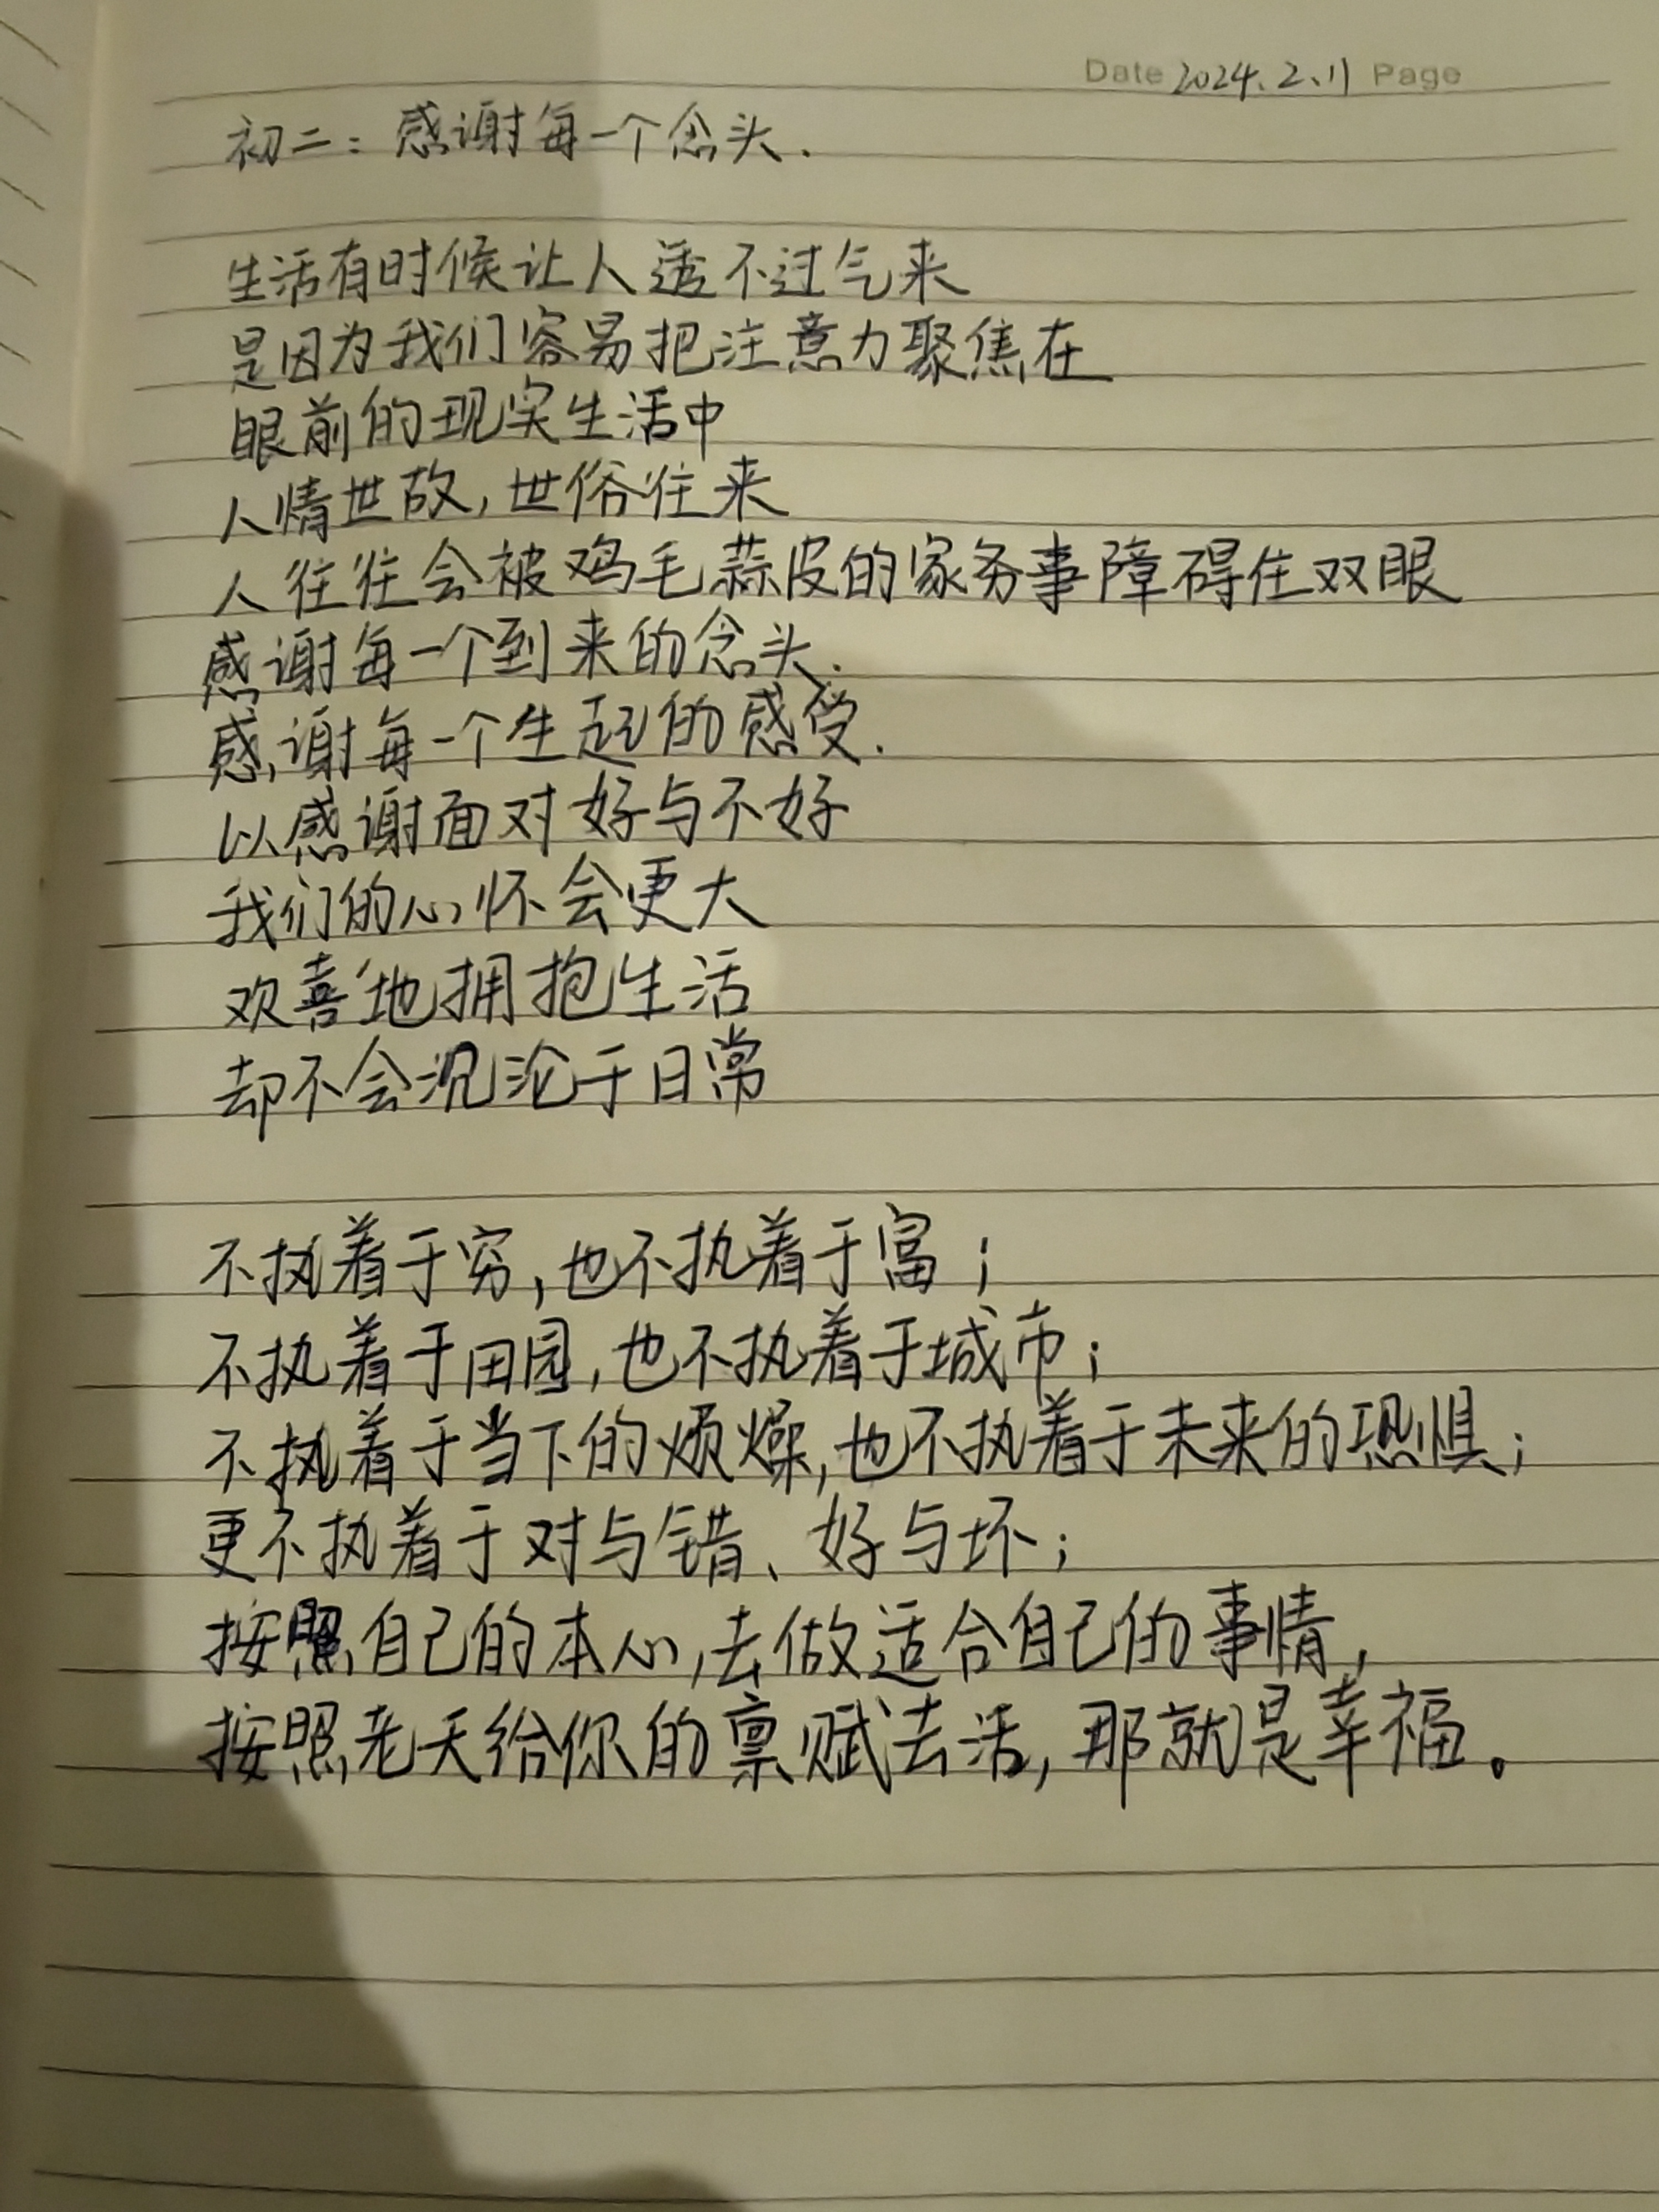 Date 2024.2.11 Page
初二：感谢每一个念头.
生活有时候让人透不过气来
是因为我们容易把注意力聚焦在
眼前的现实生活中
人情世故,世俗往来
人往往会被鸡毛蒜皮的家务事障碍住双眼
感谢每一个到来的念头.
感谢每一个生起的感受.
以感谢面对好与不好
我们的心怀会更大
欢喜地拥抱生活
却不会沉沦于日常
不执着于穷,也不执着于富；
不执着于田园,也不执着于城市；
不执着于当下的烦燥,也不执着于未来的恐惧；
更不执着于对与错、好与坏；
按照自己的本心,去做适合自己的事情,
按照老天给你的禀赋去活,那就是幸福。